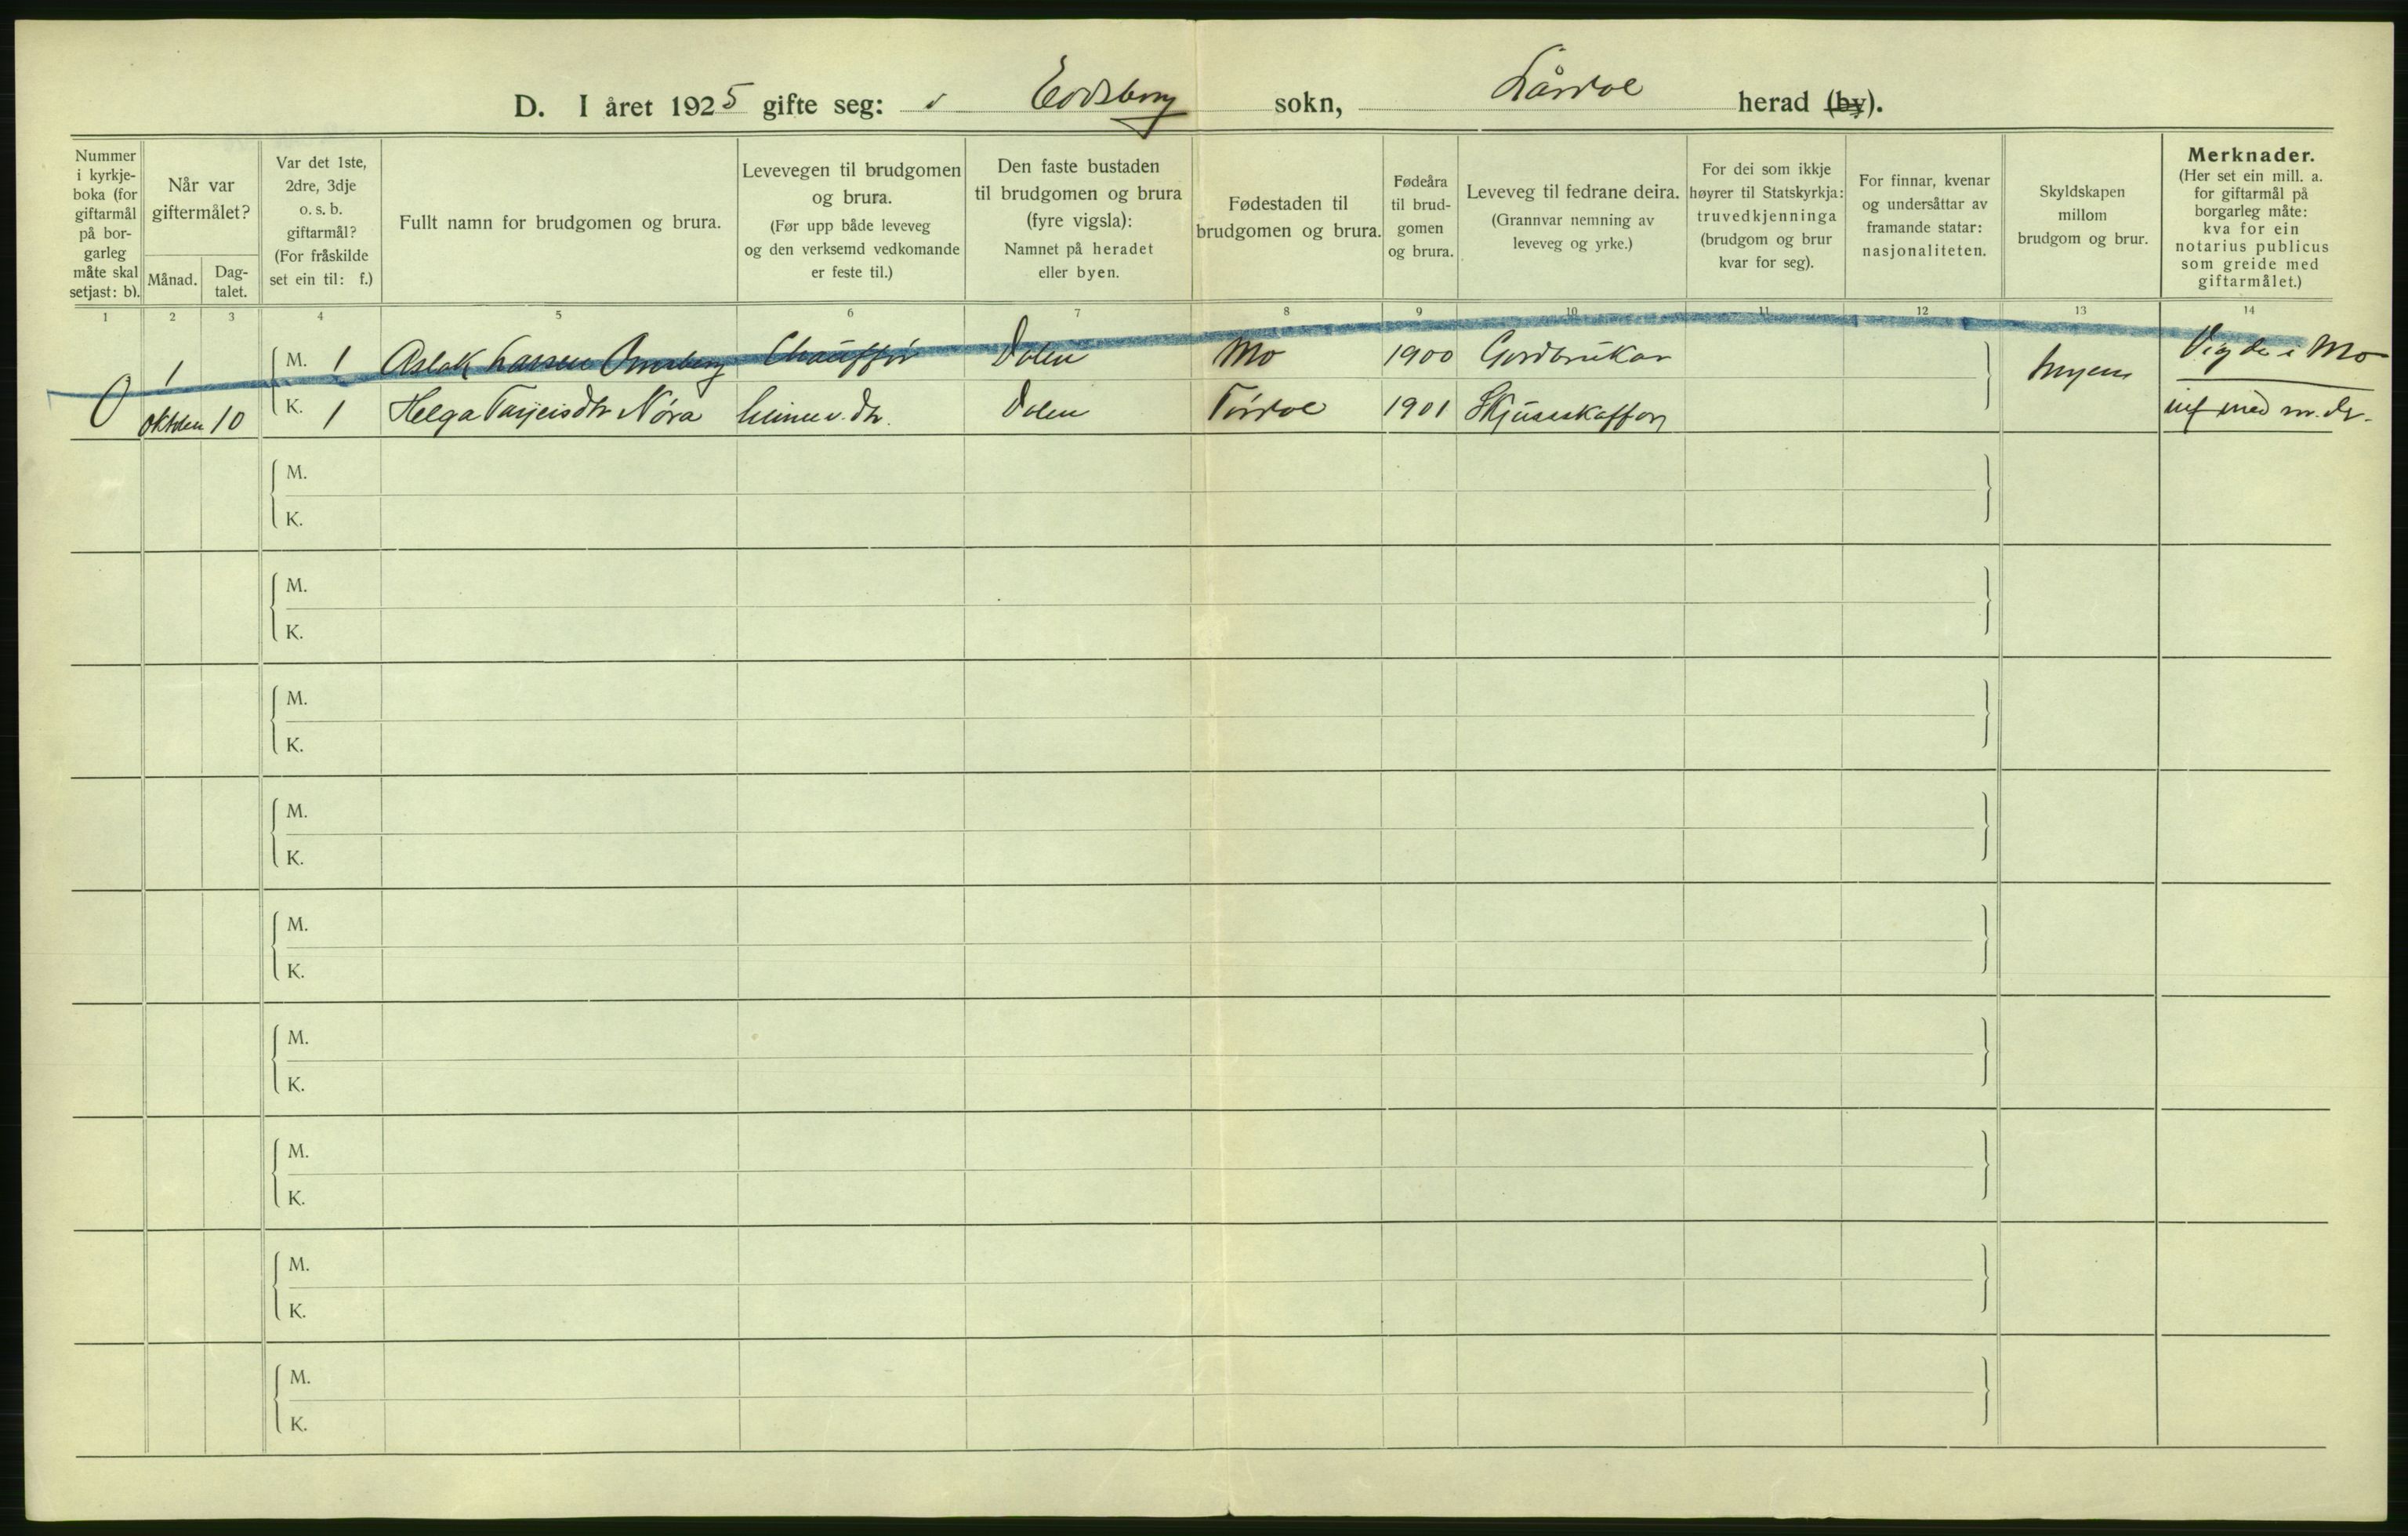 D. I året 1925 gifte seg: i Eidsborg sokn, Lårdal herad (by).
Nummer i kyrkje-boka (for giftarmål på bor-garleg måte skal setjast: b).
Når var giftermålet?
Månad.
Dag-talet.
Var det 1ste, 2dre, 3dje o. s. b. giftarmål? (For fråskilde set ein til: f.)
Fullt namn for brudgomen og brura.
Levevegen til brudgomen og brura. (Før upp både leveveg og den verksemd vedkomande er feste til.)
Den faste bustaden til brudgomen og brura (fyre vigsla): Namnet på heradet eller byen.
Fødestaden til brudgomen og brura.
Fødeåra til brud-gomen og brura.
Leveveg til fedrane deira. (Grannvar nemning av leveveg og yrke.)
For dei som ikkje høyrer til Statskyrkja: truvedkjenninga (brudgom og brur kvar for seg).
For finnar, kvenar og undersåttar av framande statar: nasjonaliteten.
Skyldskapen millom brudgom og brur.
Merknader. (Her set ein mill. a. for giftarmål på borgarleg måte: kva for ein notarius publicus som greide med giftarmålet.)
1 2 3 4 5 6 7 8 9 10 11 12 13 14
1 M. 1 Aslak Larsen Chauffør Dalen Mo 1900 Gardbrukar Ingen Vigde i Mo
0 oktober 10 K. 1 Helga Tarjeisdtr Nøra heimev. dtr. Dalen Tørdal 1901 Skjusskaffar
M.
K.
M.
K.
M.
K.
M.
K.
M.
K.
M.
K.
M.
K.
M.
K.
M.
K.